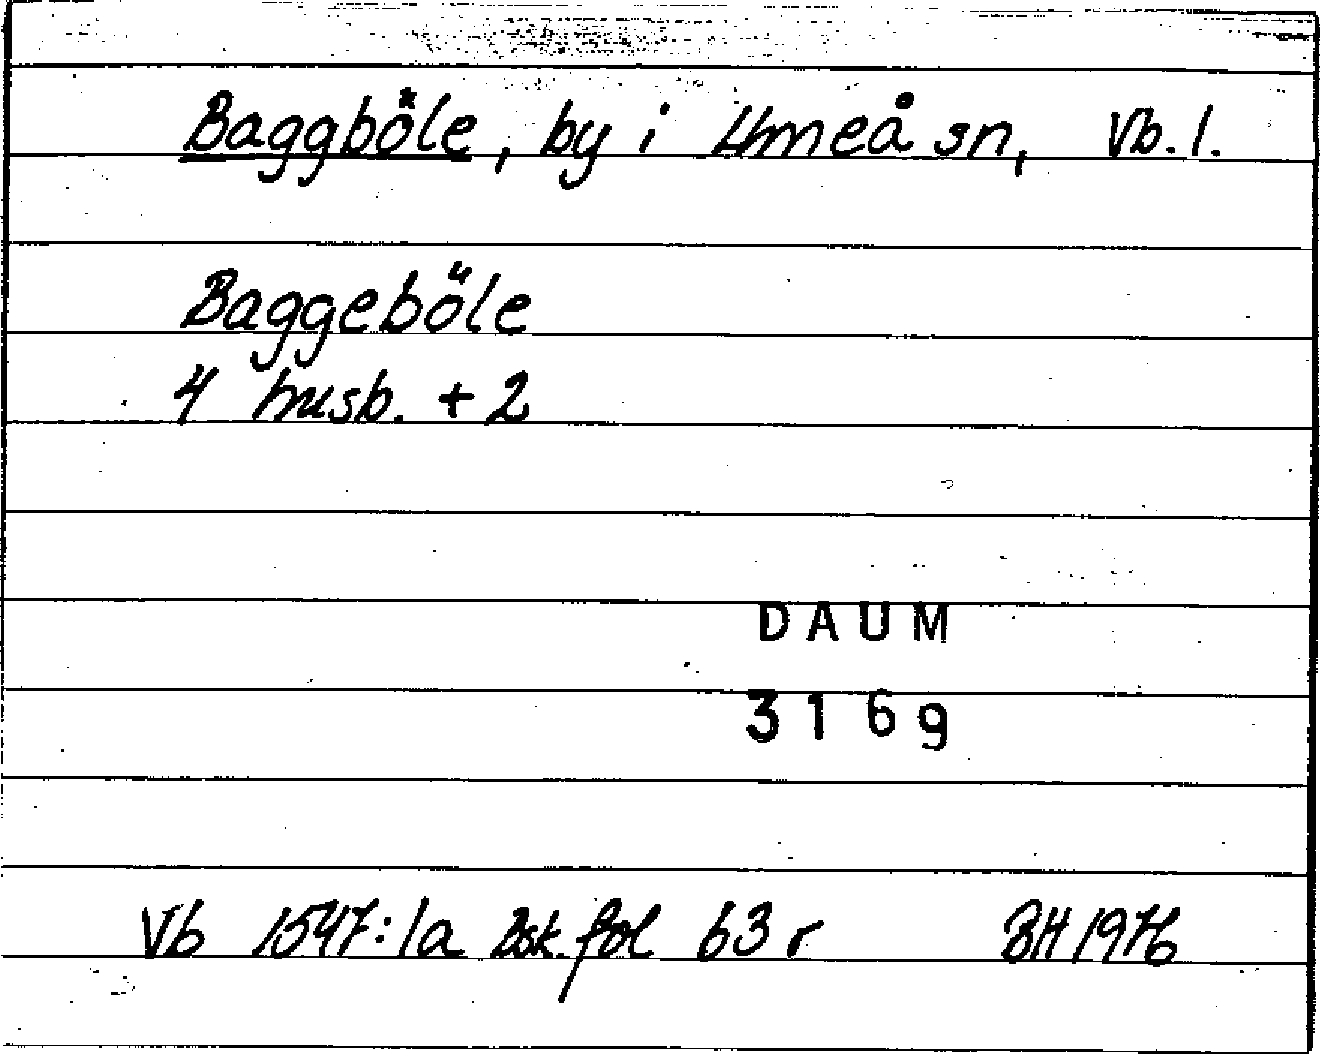 Baggböle, by i Umeå sn, Vb. l.
Baggeböle
4 husb. + 2
DAUM
3169
Vb 1547:1a Bsk. fol 63 r BH 1976